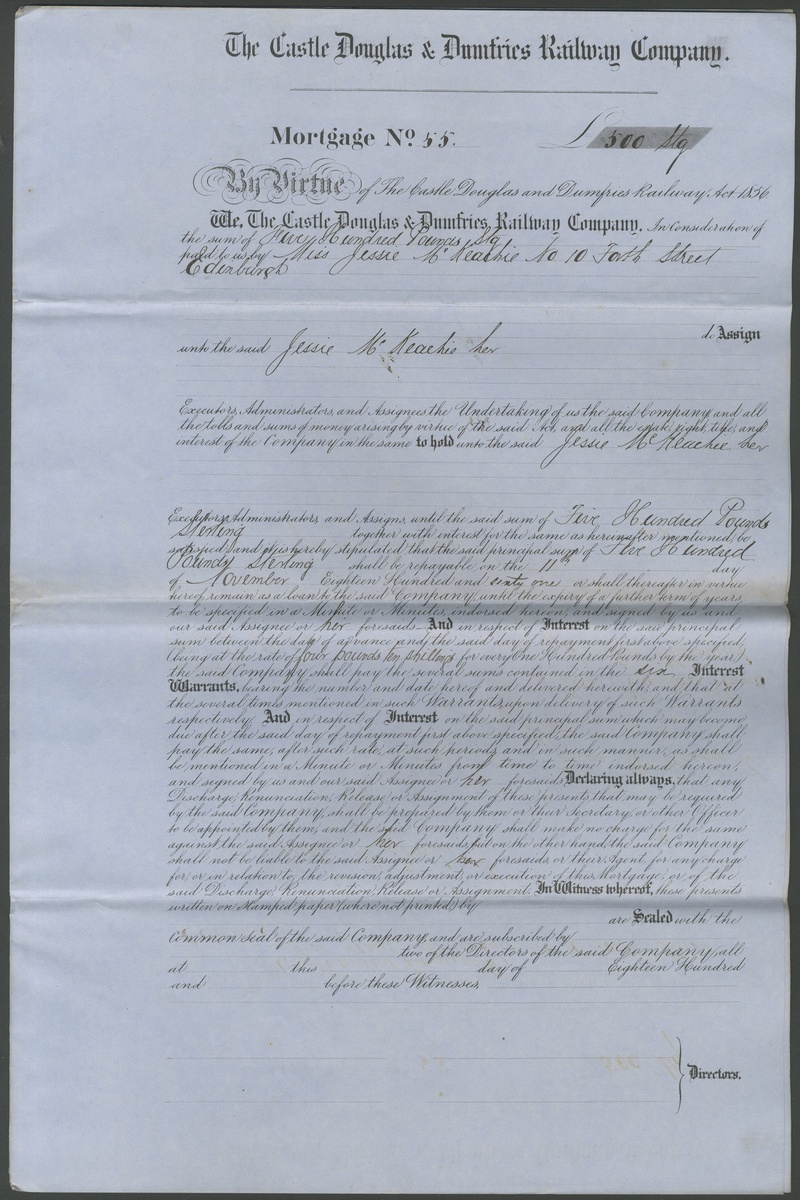 The Castle Douglas & Dumfries Railway Company.
Mortgage No. 55.
£500 Stg
By Virtue of The Castle Douglas and Dumfries Railway Act 1856
We, The Castle Douglas & Dumfries Railway Company, In Consideration of
the sum of Five Hundred Pounds Stg
paid to us by Miss Jessie McKeachie No 10 Forth Street
Edinburgh
do Assign
unto the said Jessie McKeachie her
Executors, Administrators, and Assignees the Undertaking of us the said Company, and all
the tolls and sums of money arising by virtue of the said Act, and all the estate, right, title, and
interest of the Company in the same to hold unto the said Jessie McKeachie her
Executors, Administrators, and Assigns, until the said sum of Five Hundred Pounds
Sterling together with interest for the same as hereinafter mentioned, be
satisfied, and it is hereby stipulated that the said principal sum of Five Hundred
Pounds Sterling shall be repayable on the 11th day
of November Eighteen Hundred and sixty one or shall thereafter in virtue
hereof, remain as a loan to the said Company, until the expiry of a further term of years,
to be specified in a Minute or Minutes, indorsed hereon, and signed by us and
our said Assignee or her foresaids And in respect of Interest on the said principal
sum between the date of advance and the said day of repayment first above specified,
(being at the rate of four pounds ten shillings for every One Hundred Pounds by the year)
the said Company shall pay the several sums contained in the six Interest
Warrants, bearing the number and date hereof and delivered herewith, and that at
the several times mentioned in such Warrants, upon delivery of such Warrants
respectively And in respect of Interest on the said principal sum which may become
due after the said day of repayment first above specified, the said Company shall
pay the same, after such rate, at such periods, and in such manner, as shall
be mentioned in a Minute or Minutes from time to time indorsed hereon,
and signed by us and our said Assignee or her foresaids, Declaring always, that any
Discharge, Renunciation, Release or Assignment of these presents that may be required
by the said Company, shall be prepared by them or their Secretary, or other Officer
to be appointed by them, and the said Company shall make no charge for the same
against the said Assignee or her foresaids, but on the other hand, the said Company
shall not be liable to the said Assignee or her foresaids or their Agent, for any charge
for, or in relation to, the revision, adjustment, or execution of this Mortgage, or of the
said Discharge, Renunciation, Release or Assignment. In Witness whereof, these presents
written on stamped paper (where not printed) by
are Sealed with the
Common Seal of the said Company, and are subscribed by
two of the Directors of the said Company, all
at this day of Eighteen Hundred
and before these Witnesses,
Directors.